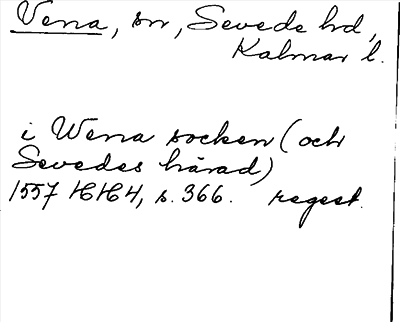 Vena, sn, Sevede hd,
Kalmar l.
i Wena socken (och
Sevedes härad)
1557 HH4, s. 366. regest.